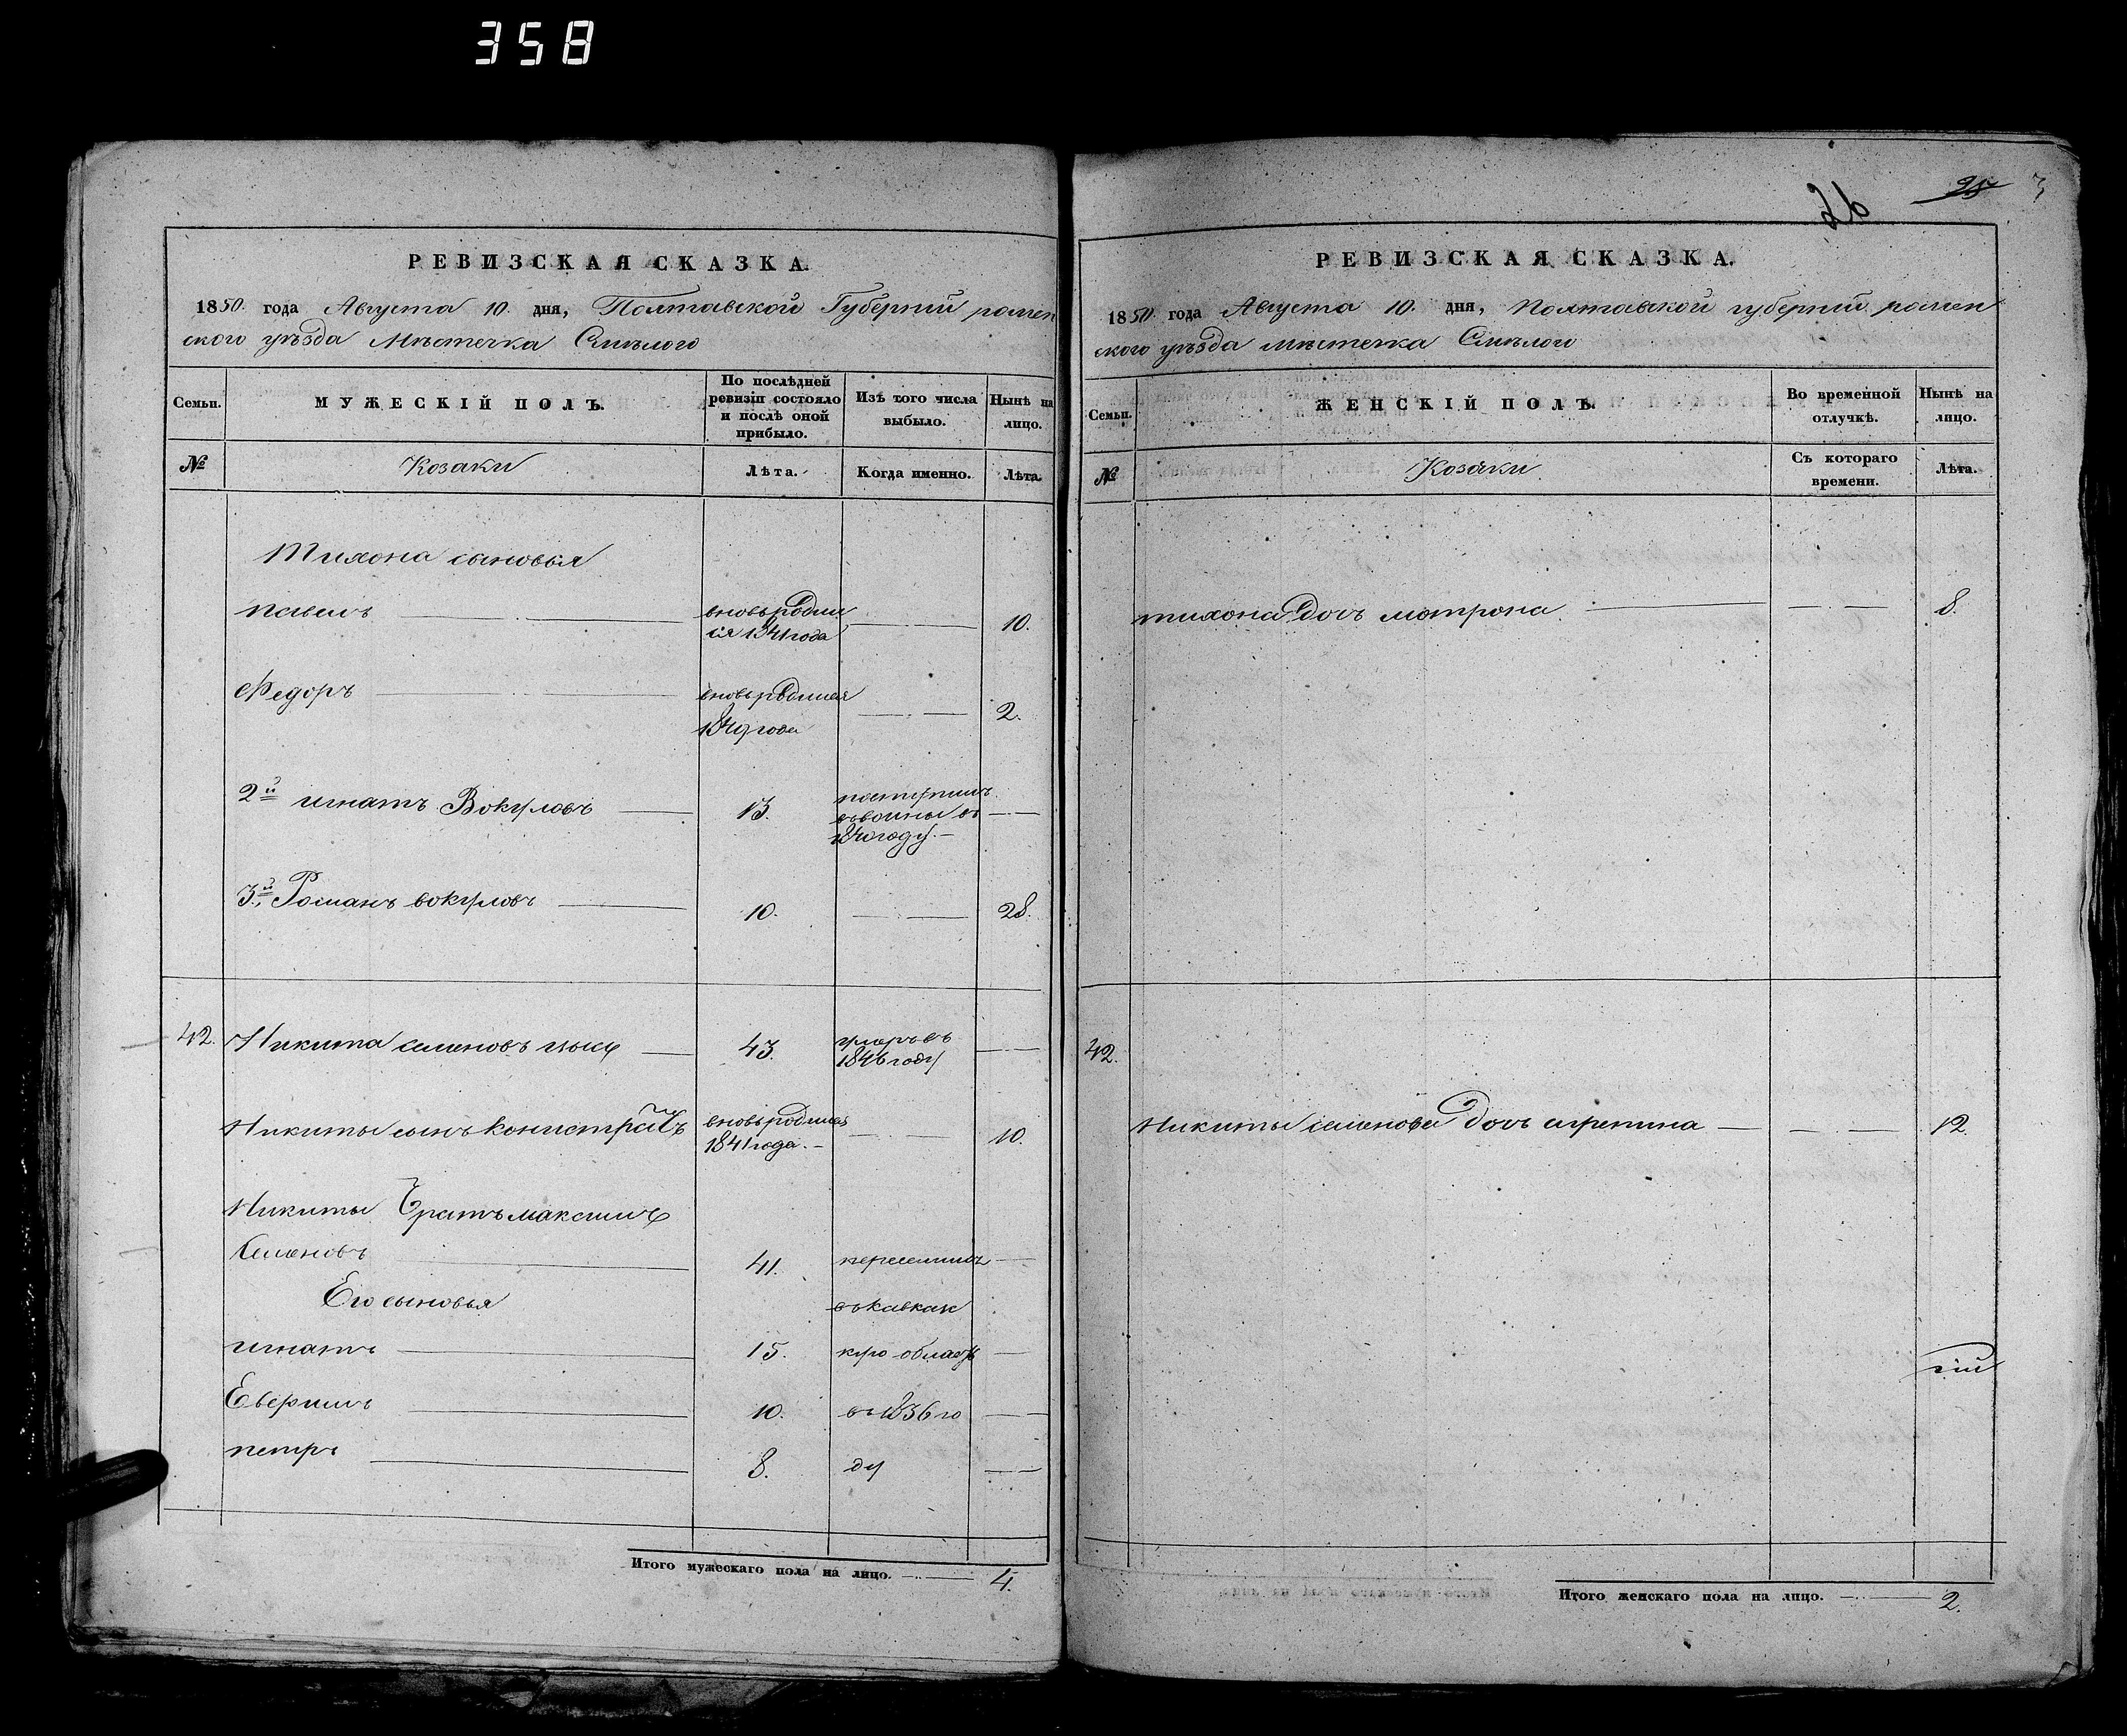 358
РЕВИЗСКАЯ СКАЗКА.
1850. года Августа 10. дня, Полтавской Губерніи ромен
ского уѣзда Мѣстечка Смѣлого
Семьи.
МУЖЕСКІЙ ПОЛЪ.
По послѣдней
ревизіи состояло
и послѣ оной
прибыло.
Изъ того числа
выбыло.
Нынѣ на
лицо.
№
Козаки
Лѣта.
Когда именно.
Лѣта.
Тихона сыновья
павелъ вновьродил
ся 1841 года 10.
Федоръ вновьродился
1849 года 2.
2й игнатъ Вокуловъ 13. поступилъ
въвоины въ
1840 году.
3й Романъ вокуловъ 10. 28.
42. Никита семеновъ 43. умеръ въ
1846 году
Никиты сынъ вновьродился
1841 года. 10.
Никиты братъ максимъ
Семеновъ 41. переселилъ
Его сыновья въ кавказ
игнатъ 15. кую область
10. въ 1836 го
петръ 8. ду
Итого мужескаго пола на лицо. 4.
25
РЕВИЗСКАЯ СКАЗКА.
1850. года Августа 10. дня, Полтавской губерніи ромен
ского уѣзда мѣстечка Смѣлого
Семьи.
ЖЕНСКІЙ ПОЛЪ.
Во временной
отлучкѣ.
Нынѣ на
лицо.
№
Козаки
Съ котораго
времени.
Лѣта.
тихона дочь мотрона 8.
42.
Никиты семенова дочь агрепина 12.
Итого женскаго пола на лицо. 2.